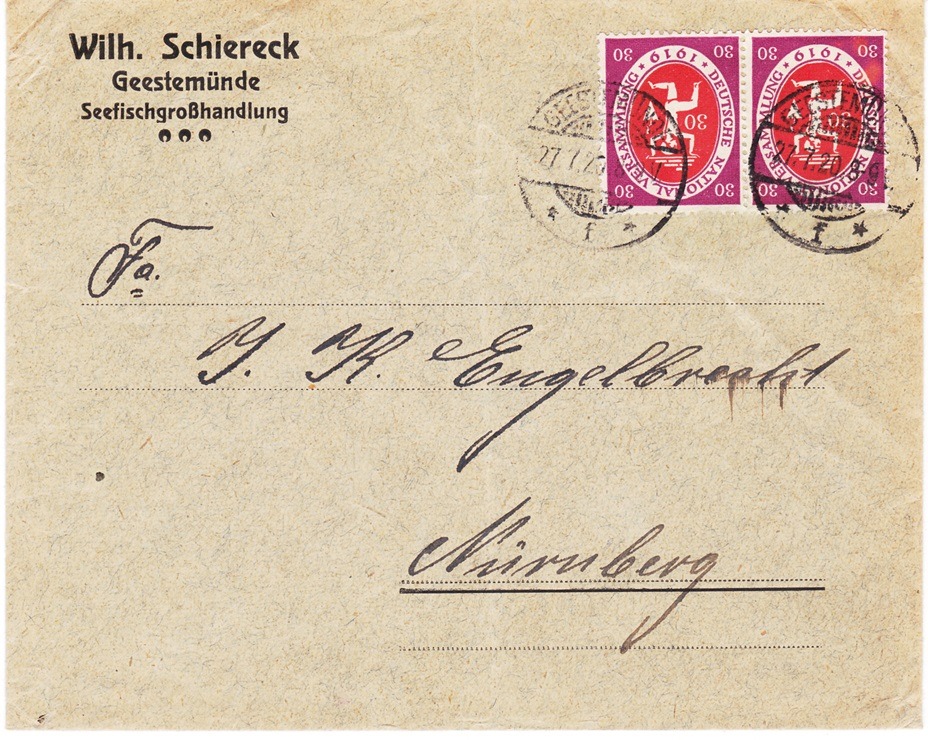 Wilh. Schiereck
Geestemünde
Seefischgroßhandlung
30 30 30 30
DEUTSCHE NATIONALVERSAMMLUNG
1919
30
30 30 30
DEUTSCHE NATIONALVERSAMMLUNG
1919
30
27.7.20. 8
f
27.7.20. 8-9
f
Fa.
J. K. Engelbrecht
Nürnberg